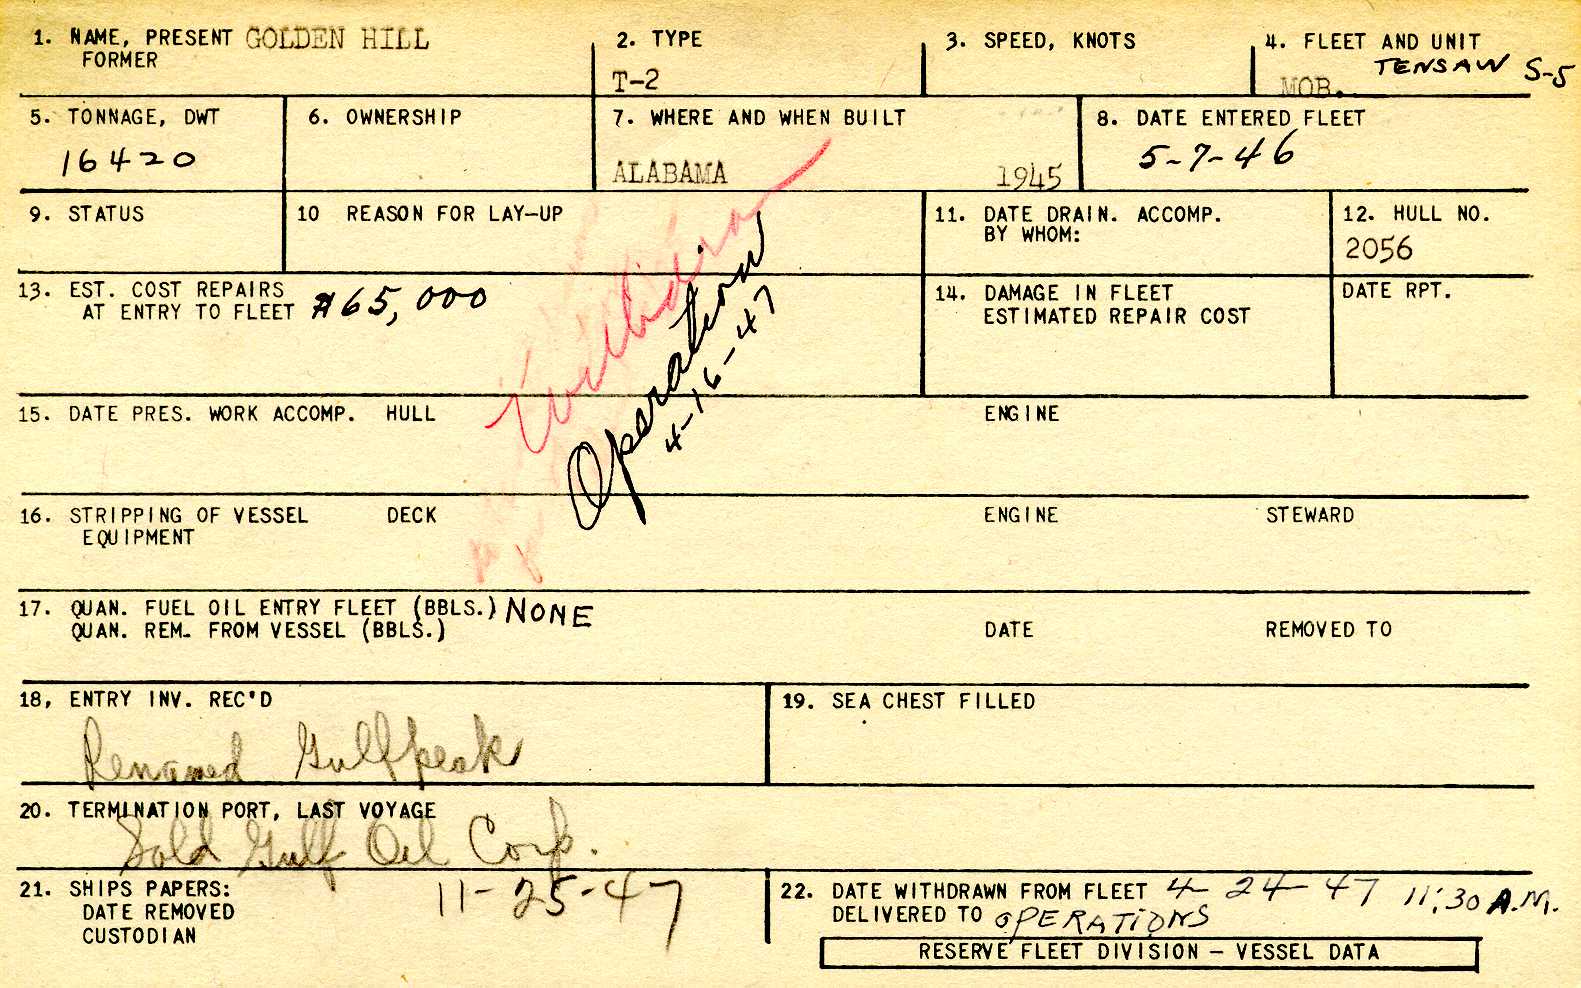 1. NAME, PRESENT GOLDEN HILL
FORMER
2. TYPE
T-2
3. SPEED, KNOTS
4. FLEET AND UNIT
TENSAW S-5
MOB.
5. TONNAGE, DWT
16420
6. OWNERSHIP
7. WHERE AND WHEN BUILT
ALABAMA 1945
8. DATE ENTERED FLEET
5-7-46
9. STATUS
10 REASON FOR LAY-UP
11. DATE DRAIN. ACCOMP.
BY WHOM:
12. HULL NO.
2056
13. EST. COST REPAIRS
AT ENTRY TO FLEET $65,000
14. DAMAGE IN FLEET
ESTIMATED REPAIR COST
DATE RPT.
Withdrawn
Operation
4-16-47
15. DATE PRES. WORK ACCOMP. HULL ENGINE
16. STRIPPING OF VESSEL DECK ENGINE STEWARD
EQUIPMENT
17. QUAN. FUEL OIL ENTRY FLEET (BBLS.) NONE
QUAN. REM. FROM VESSEL (BBLS.) DATE REMOVED TO
18, ENTRY INV. REC'D
Renamed Gulfpeak
19. SEA CHEST FILLED
20. TERMINATION PORT, LAST VOYAGE
Sold Gulf Oil Corp.
21. SHIPS PAPERS: 11-25-47
DATE REMOVED
CUSTODIAN
22. DATE WITHDRAWN FROM FLEET 4-24-47 11:30 A.M.
DELIVERED TO OPERATIONS
RESERVE FLEET DIVISION - VESSEL DATA